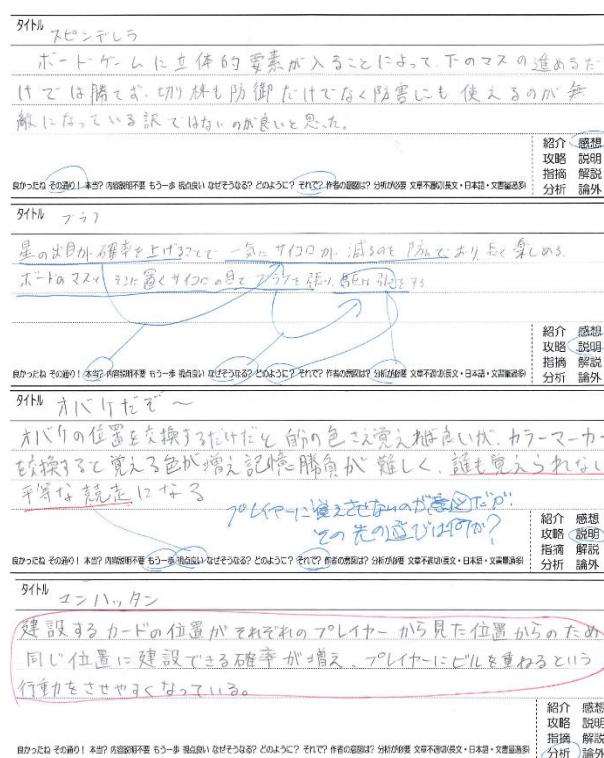 タイトル スピンデレラ
ボードゲームに立体的要素が入ることによって、下のマスの進めるだ
けでは勝てず、切り株も防御だけでなく防害にも使えるのが無
敵になっている訳ではないのが良いと思った。
紹介 感想
攻略 説明
指摘 解説
分析 論外
良かったね その通り! 本当? 内容説明不要 もう一歩 視点良い なぜそうなる? どのように? それで? 作者の意図は? 分析が必要 文章不適切(長文・日本語・文書量過多)
タイトル ブラフ
星の出目が確率を上げることで一気にサイコロが、減るのを防いでおり長く楽しめる
ボードのマスと そこに置くサイコロの目でブラフを張り、駆け引きをする
紹介 感想
攻略 説明
指摘 解説
分析 論外
良かったね その通り! 本当? 内容説明不要 もう一歩 視点良い なぜそうなる? どのように? それで? 作者の意図は? 分析が必要 文章不適切(長文・日本語・文書量過多)
タイトル オバケだぞ〜
オバケの位置を交換するだけだと自分の色さえ覚えれば良いが、カラーマーカー
を交換すると覚える色が増え記憶勝負が難しく、誰も覚えられない
平等な競走になる
プレイヤーに覚えさせないのが意図だが
その先の遊びは何か?
紹介 感想
攻略 説明
指摘 解説
分析 論外
良かったね その通り! 本当? 内容説明不要 もう一歩 視点良い なぜそうなる? どのように? それで? 作者の意図は? 分析が必要 文章不適切(長文・日本語・文書量過多)
タイトル マンハッタン
建設するカードの位置がそれぞれのプレイヤーから見た位置からのため
同じ位置に建設できる確率が増え、プレイヤーにビルを重ねるという
行動をさせやすくなっている。
紹介 感想
攻略 説明
指摘 解説
分析 論外
良かったね その通り! 本当? 内容説明不要 もう一歩 視点良い なぜそうなる? どのように? それで? 作者の意図は? 分析が必要 文章不適切(長文・日本語・文書量過多)